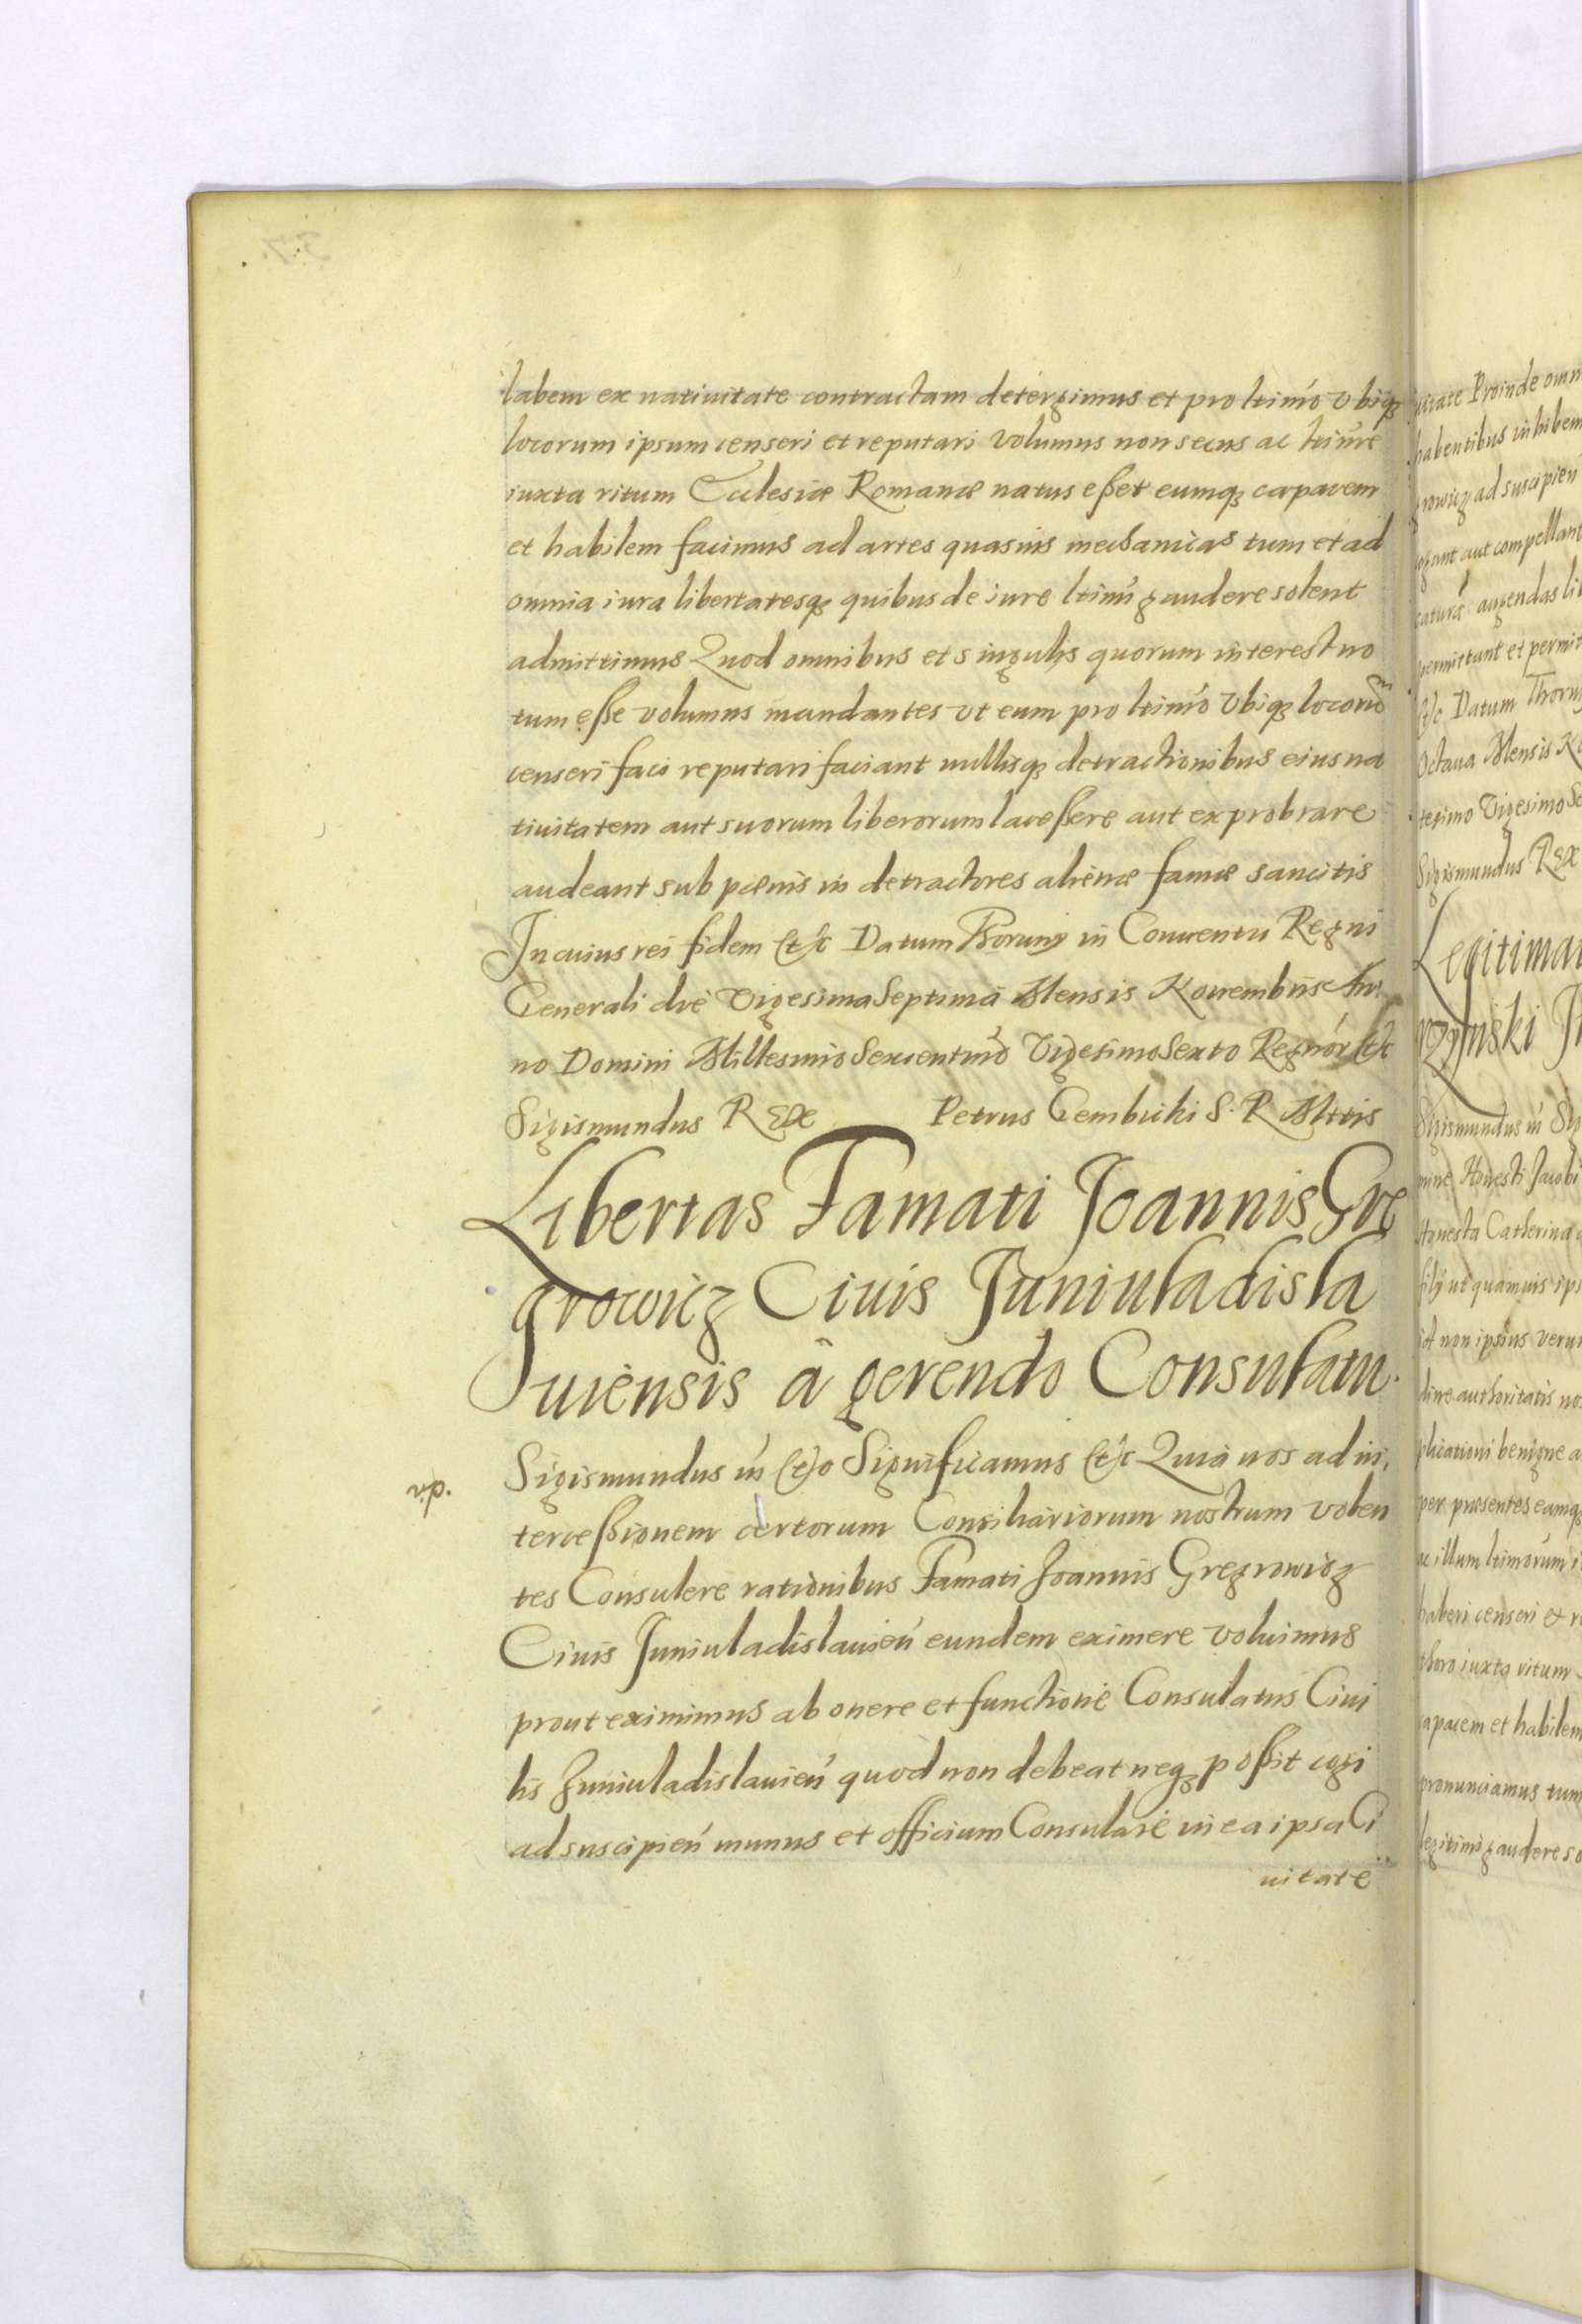 labem ex natiuitate contractam detergimus et pro ltimo vbiq3
locorum ipsum censeri et reputari volumus non secus ac ltimre
iuxta ritum Ecclesiæ Romanæ natus eßet eumq3 capacem
et habilem facimus ad artes quasuis mechanicas tum et ad
omnia iura libertatesq3 quibus de iure ltimi gaudere solent
admittimus Quod omnibus et singulis quorum interest no
tum eße volumus mandantes vt eum pro ltimo vbiq3 locorũ
censeri faci reputari faciant nullisq3 detractionibus eius na
tiuitatem aut suorum liberorum laceßere aut exprobrare
audeant sub pœnis in detractores alienæ famæ sancitis
In cuius rei fidem etc Datum Thoruny in Conuentu Regni
Generali die Vigesima Septima Mensis Nouembris An
no Domini Millesimo Sexcentmo Vigesimo Sexto Regnor etc
Sigismundus Rex Petrus Gembicki S. R. Mttis
Libertas Famati Joannis Gre
growicz Ciuis Juniuladisla
uiensis â gerendo Consulatu.
Sigismundus in etc Significamus etc Quia nos ad in,
terceßionem certorum Consiliariorum nostrum volen
tes Consulere rationibus Famati Joannis Gregrowicz
Ciuis Juniuladislauien eundem eximere voluimus
prout eximimus ab onere et functione Consulatus Ciui
lis Juniuladislauien quod non debeat neq3 poßit cogi
ad suscipien munus et officium Consulare in ea ipsa Ci
uitate
uitate Proinde omn
habentibus inhibem
growicz ad suscipien
ogant aut compellant
augendas lib
permittant et permit
etc Datum Thoruny
Octaua Mensis No
tesimo Vigesimo Se
Sigismundus Rex
Legitimat
Sigismundus in Sig
mine Honesti Jacobi
Honesta Catherina
filij ut quamuis ips
id non ipsius verum
dine authoritatis no
plicationi benigne a
per præsentes eamq3
ac illum ltimorum i
haberi censeri et re
thoro iuxta ritum
capacem et habilem
pronunciamus tum
legitimi gaudere so